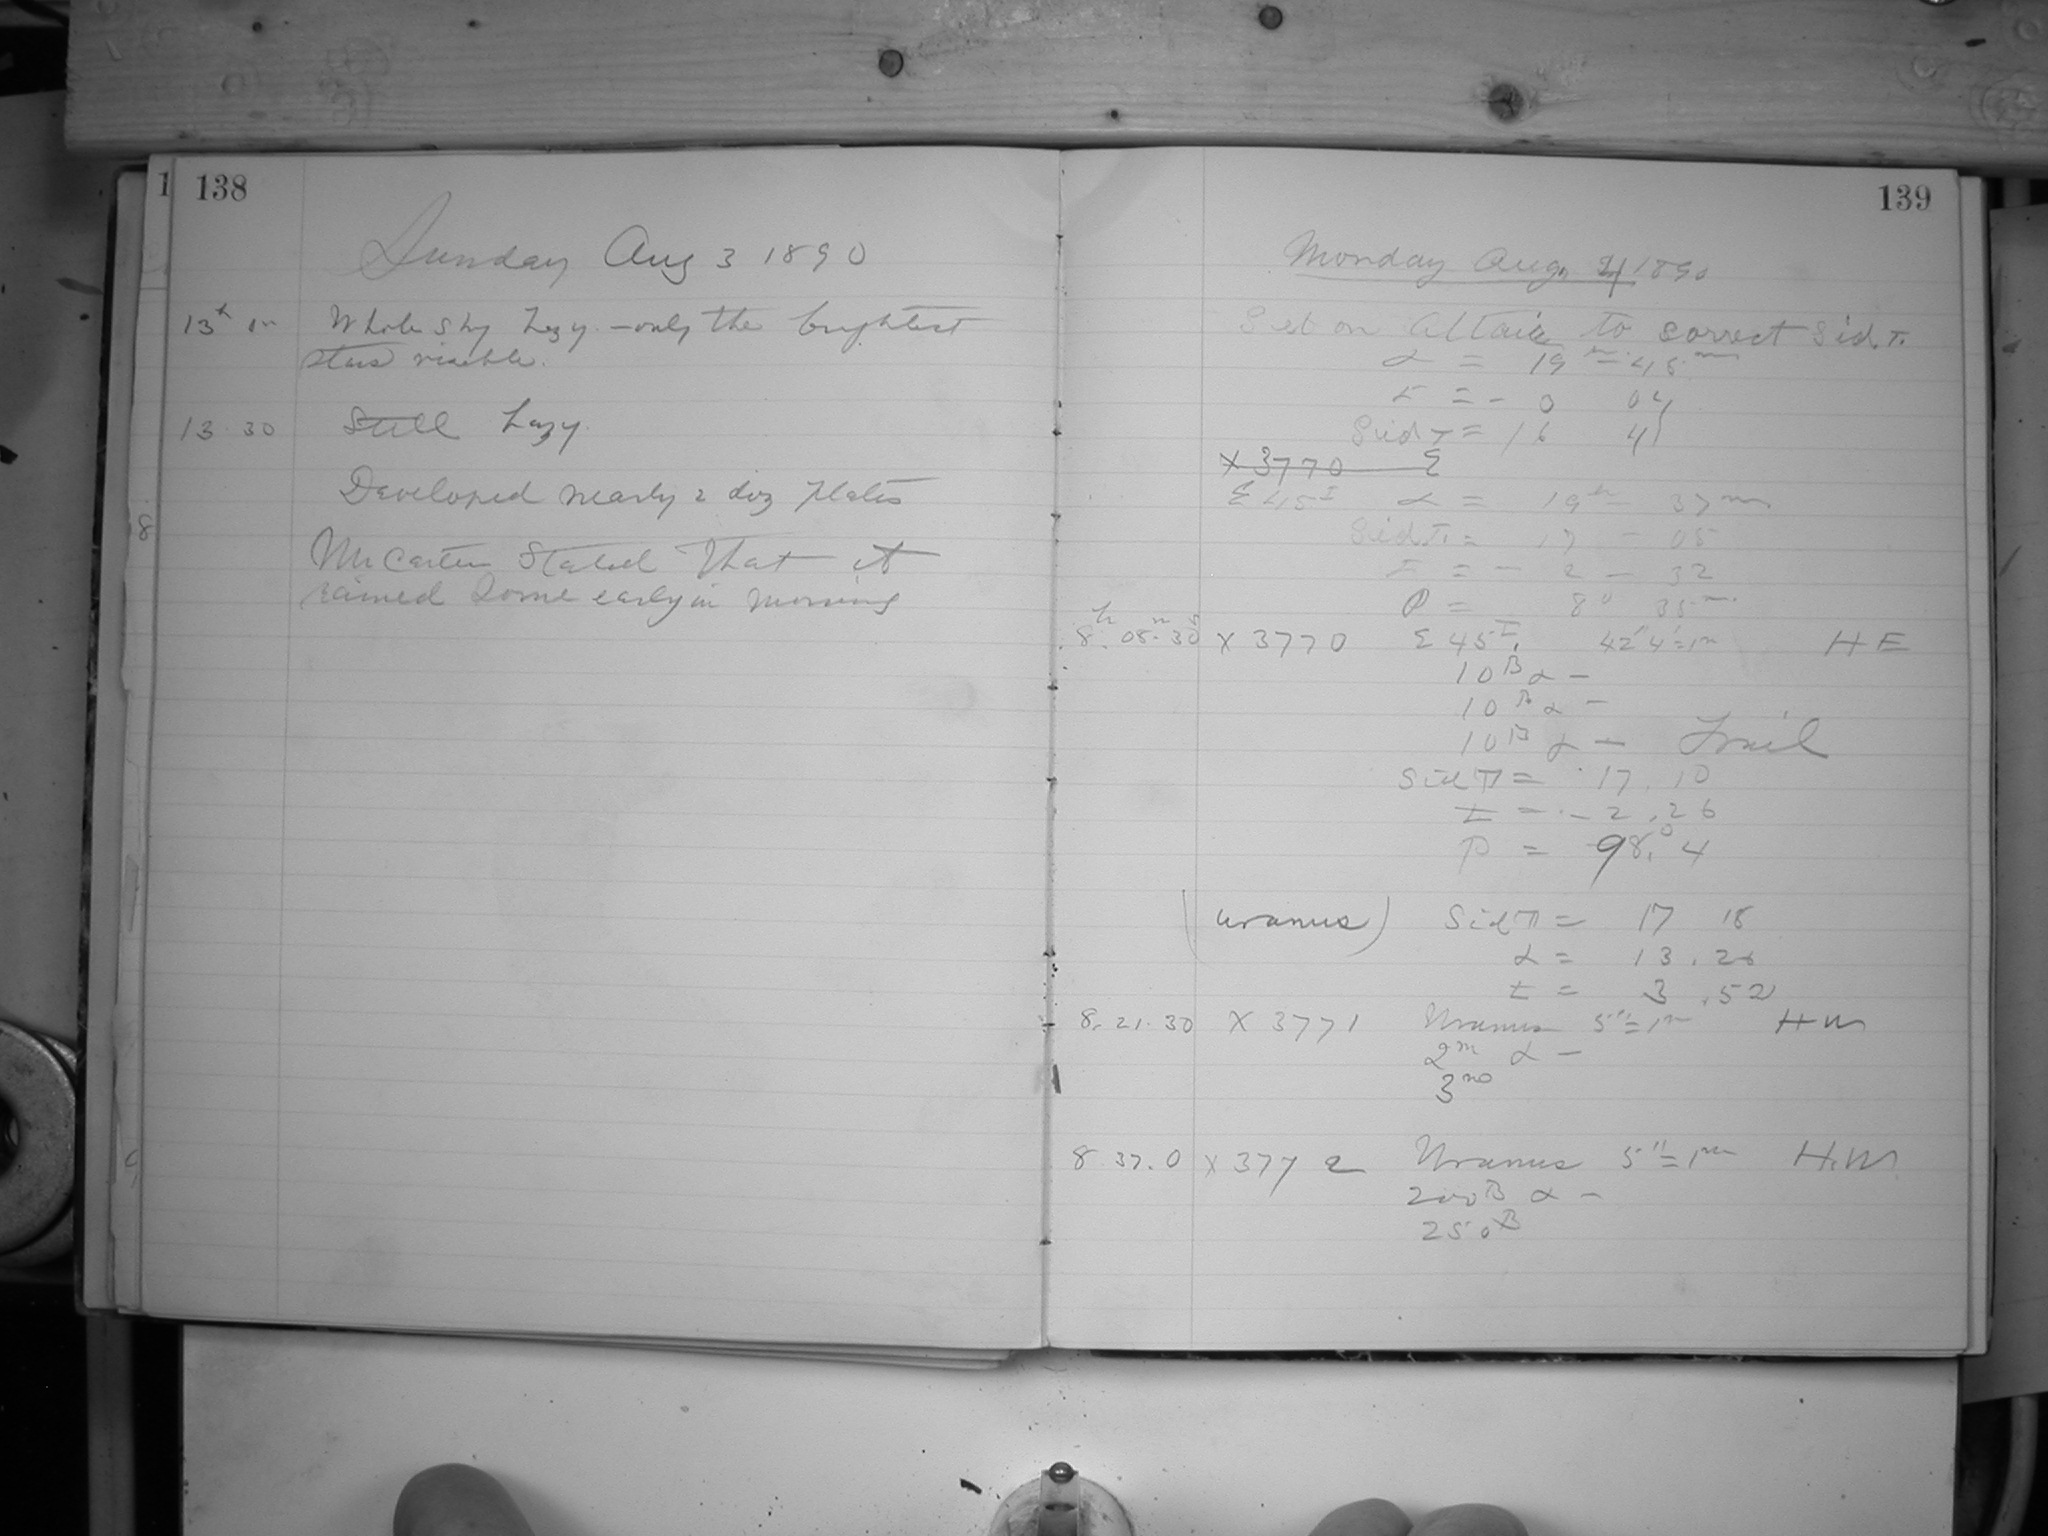 1
138
Sunday Aug 3 1890
13 h 0 m Whole sky hazy - only the brightest
stars visible.
13 30 Still hazy.
Developed nearly 2 doz plates
Mr Carter stated that it
rained some early in morning
8
139
Monday Aug. 4 1890
Set on Altair to correct Sid. T.
α = 19 h - 45 m
t = - 0 04
Sid T =
X 3770 Σ
Σ 45 I α = 19 h - 37 m
Sid T. = 17 - 05
t = - 2 - 32
P = 8 0 35 m
8 h 08 m 30 s X 3770 Σ 45 I. 42" 4 = 1 m H E
10 B α -
10 B α -
10 B α - Trail
Sid T = 17. 10
t = - 2. 26
P = 98.° 4
(Uranus) Sid T = 17 18
α = 13. 26
t = 3. 52
8. 21. 30 X 3771 Uranus 5" = 1 m H W
2 m α -
3 m
8 37. 0 X 3772 Uranus 5" = 1 m H. W
200 B α -
250 B